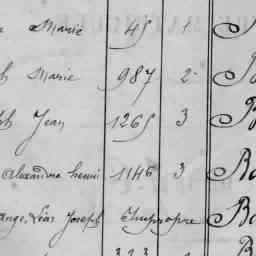 Marie 45 1
Marie 987 2
Jean 1265 3
Alexandre henri 1146 3
ange, Léon Joseph Impropre
323